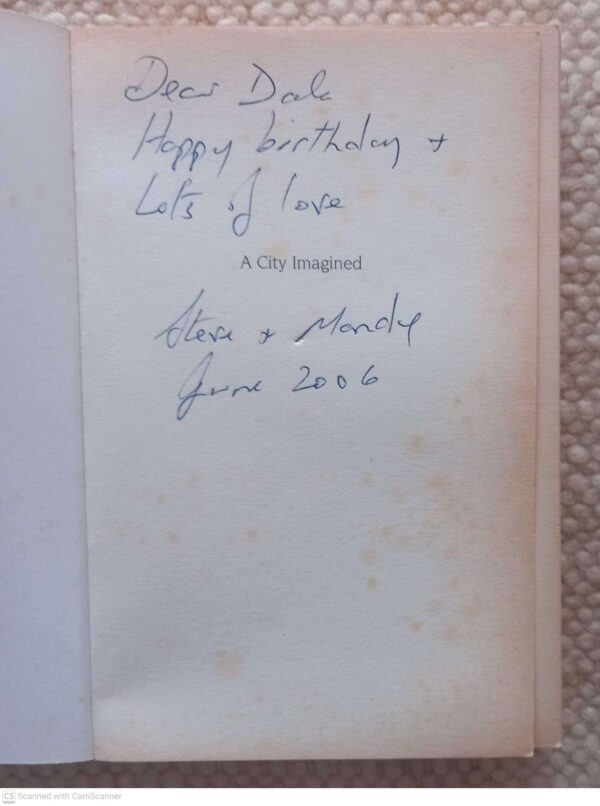 Dear Dale
Happy birthday +
Lots of love
A City Imagined
Steve + Mandy
June 2006
CS Scanned with CamScanner